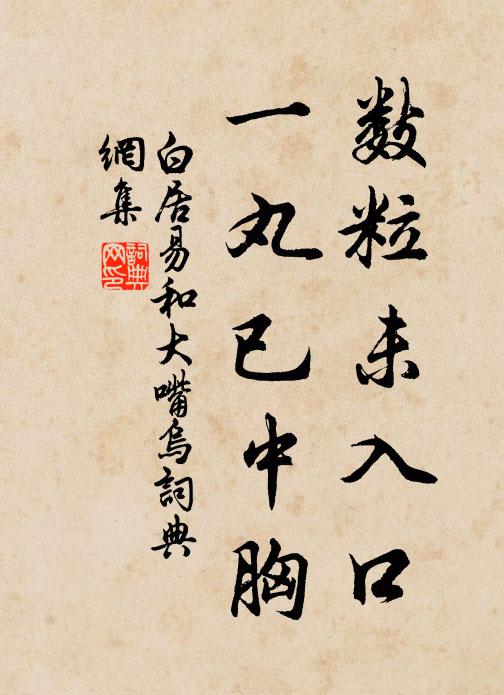 數粒未入口
一丸已中胸
白居易和大嘴烏詞典
網集
詞典
网印